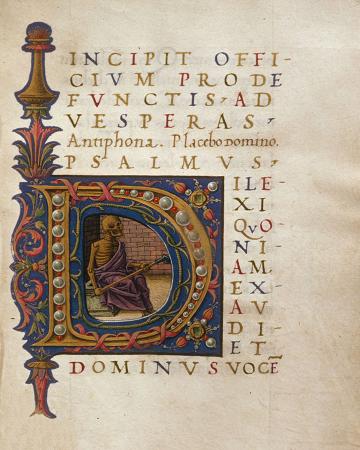 INCIPIT OFFI
CIVM PRO DE
FVNCTIS AD
VESPERAS
Antiphona. Placebo domino.
PSALMVS
DILE
XI
QVO
NI
AM
EX
AV
DI
ET
DOMINVS VOCĒ